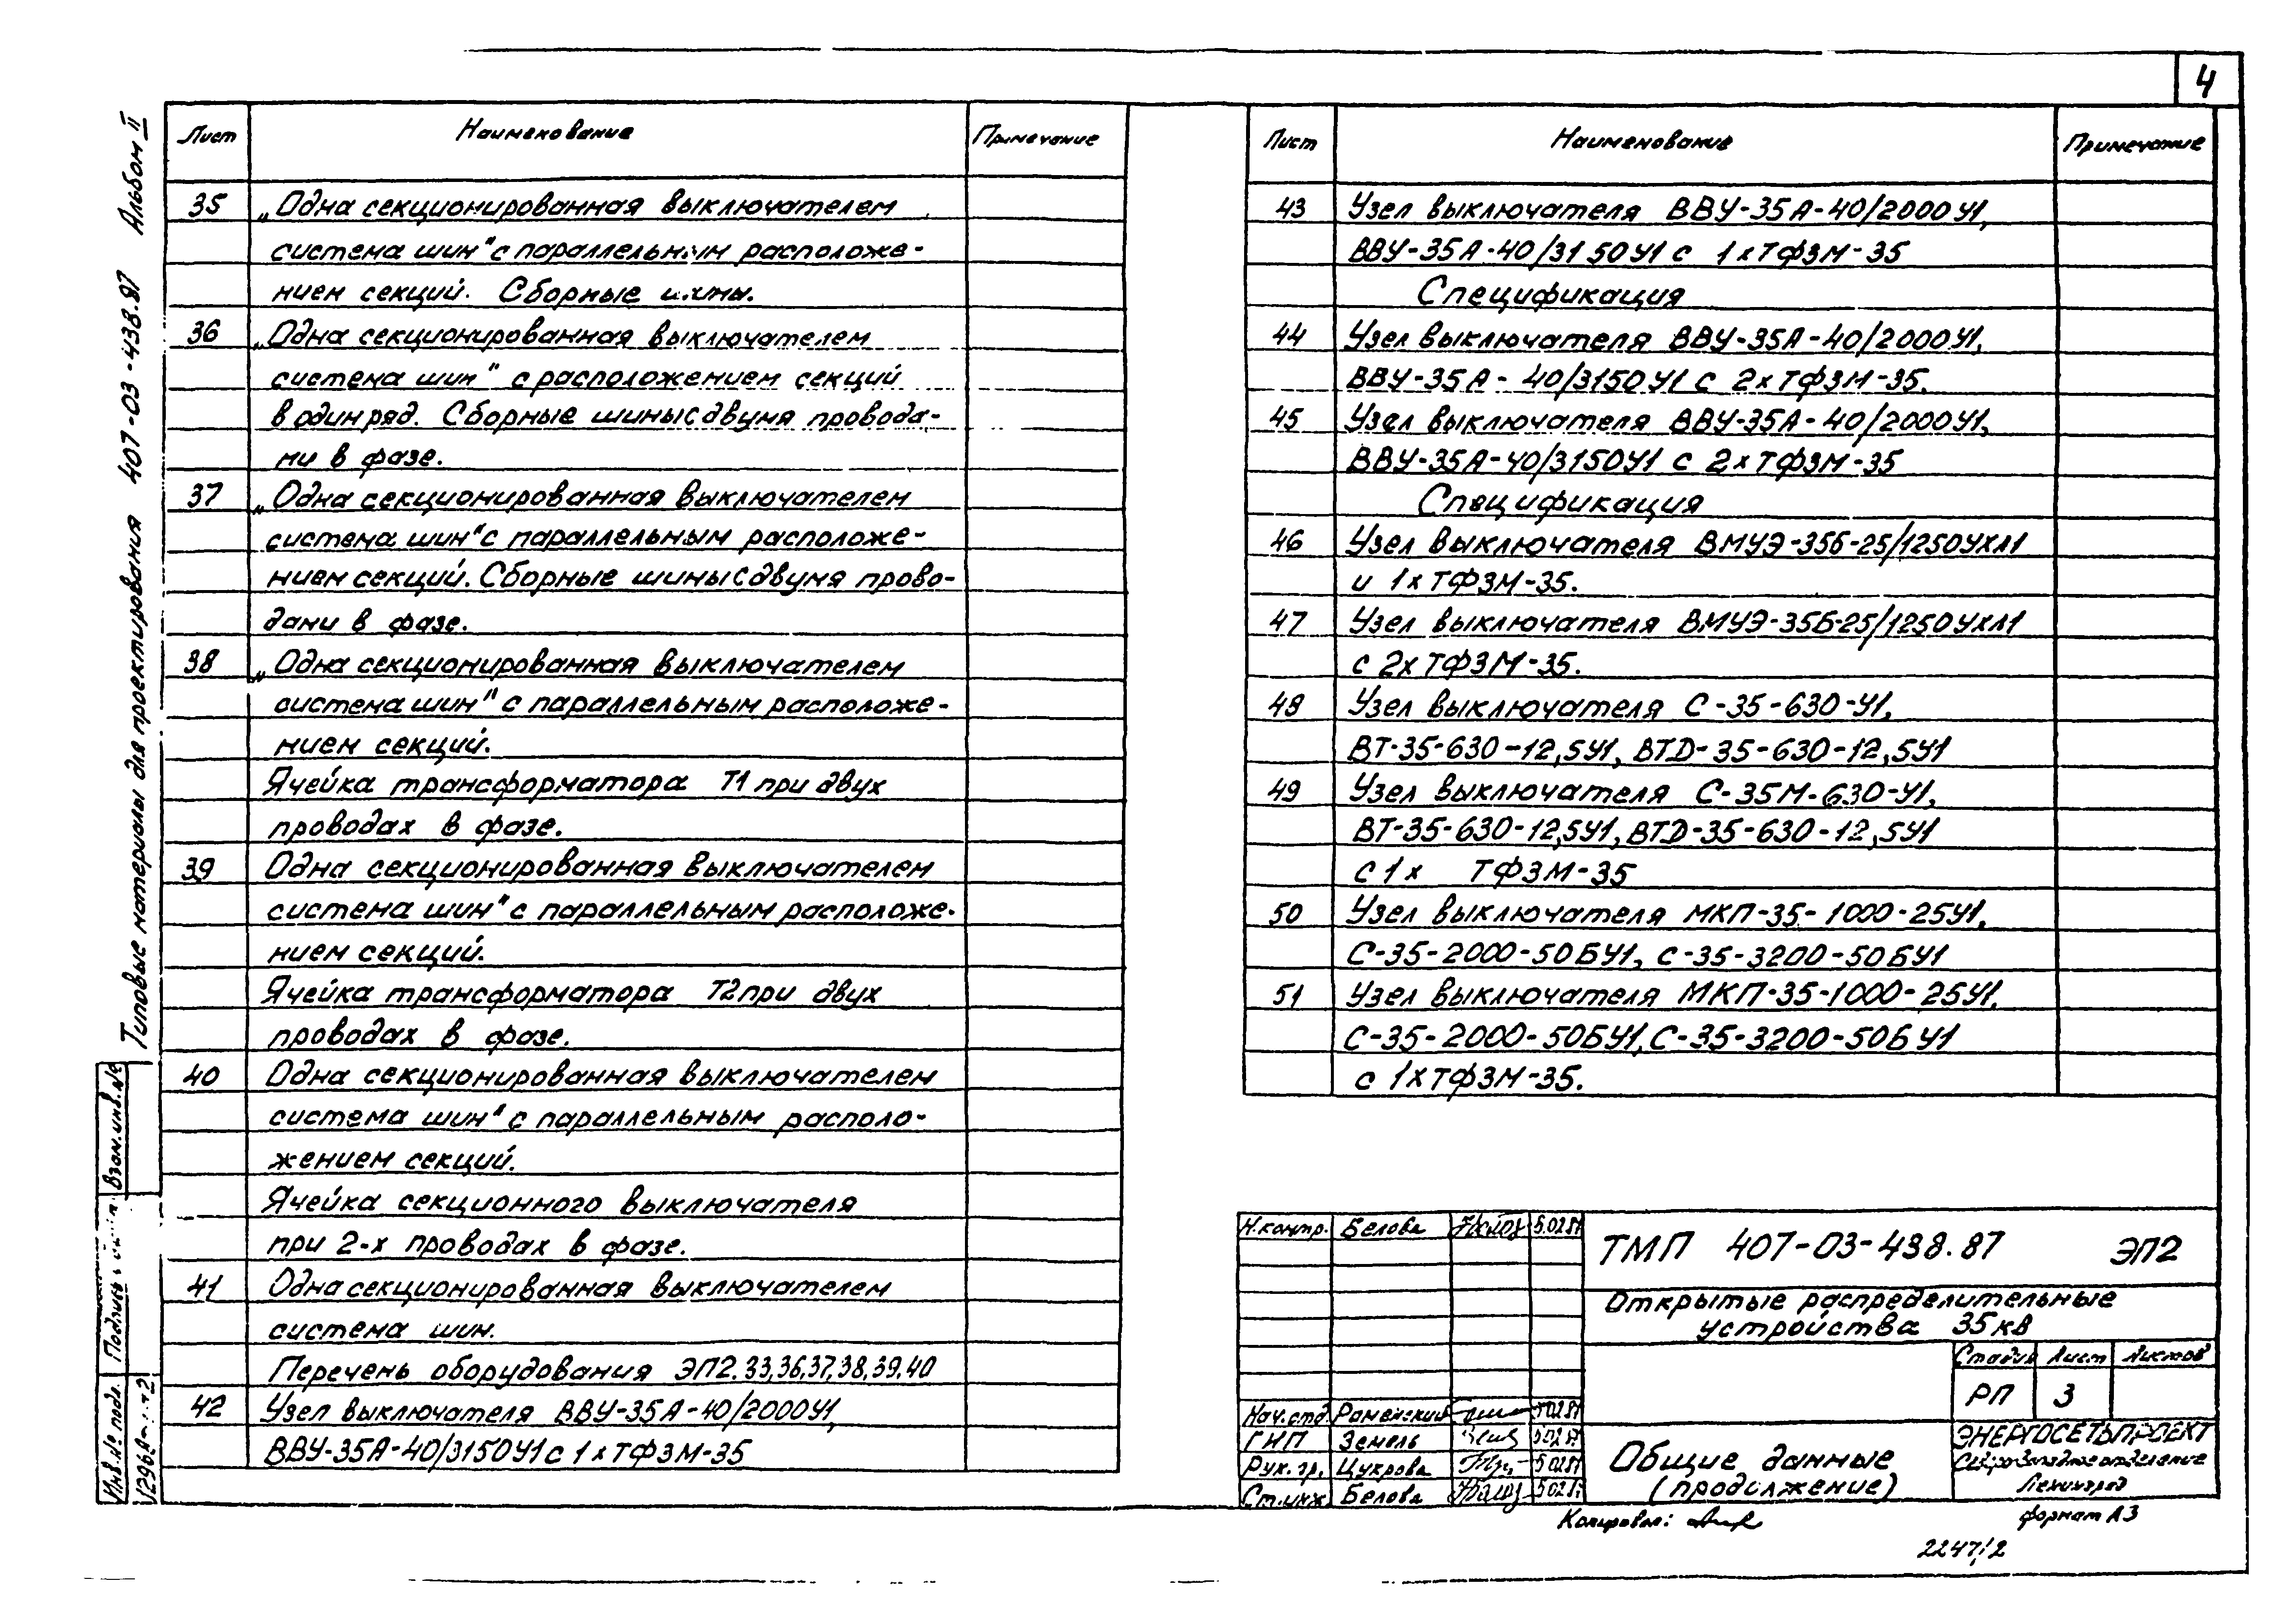 4
Альбом II
407-03-438.87
Типовые материалы для проектирования
Взам.инв.№
Инв.№ подл.
Лист Наименование Примечание
35 „Одна секционированная выключателем
система шин" с параллельным расположе-
нием секций. Сборные шины.
36 „Одна секционированная выключателем
система шин" с расположением секций
в один ряд. Сборные шины с двумя провода-
ми в фазе.
37 „Одна секционированная выключателем
система шин" с параллельным расположе-
нием секций. Сборные шины с двумя прово-
дами в фазе.
38 „Одна секционированная выключателем
система шин" с параллельным расположе-
нием секций.
Ячейка трансформатора Т1 при двух
проводах в фазе.
39 Одна секционированная выключателем
система шин" с параллельным расположе-
нием секций.
Ячейка трансформатора Т2 при двух
проводах в фазе.
40 Одна секционированная выключателем
система шин" с параллельным располо-
жением секций.
Ячейка секционного выключателя
при 2-х проводах в фазе.
41 Одна секционированная выключателем
система шин.
Перечень оборудования ЭП2.33,36,37,38,39,40
42 Узел выключателя ВВУ-35А-40/2000У1,
ВВУ-35А-40/3150У1 с 1хТФЗМ-35
Лист Наименование Примечание
43 Узел выключателя ВВУ-35А-40/2000У1,
ВВУ-35А-40/3150У1 с 1хТФЗМ-35
Спецификация
44 Узел выключателя ВВУ-35А-40/2000У1,
ВВУ-35А-40/3150У1 с 2хТФЗМ-35.
45 Узел выключателя ВВУ-35А-40/2000У1,
ВВУ-35А-40/3150У1 с 2хТФЗМ-35
Спецификация
46 Узел выключателя ВМУЭ-35Б-25/1250УХЛ1
и 1хТФЗМ-35.
47 Узел выключателя ВМУЭ-35Б-25/1250УХЛ1
с 2хТФЗМ-35.
48 Узел выключателя С-35-630-У1,
ВТ-35-630-12,5У1, ВТД-35-630-12,5У1
49 Узел выключателя С-35М-630-У1,
ВТ-35-630-12,5У1, ВТД-35-630-12,5У1
с 1х ТФЗМ-35
50 Узел выключателя МКП-35-1000-25У1,
С-35-2000-50БУ1, С-35-3200-50БУ1
51 Узел выключателя МКП-35-1000-25У1,
С-35-2000-50БУ1, С-35-3200-50БУ1
с 1хТФЗМ-35.
Н.контр. Белова 5.02.87
ТМП 407-03-438.87 ЭП2
Открытые распределительные
устройства 35кв
Стадия Лист Листов
РП 3
Нач.отд. Раменский
ГИП Земель
Рук. гр. Цукрова
Ст.инж. Белова
Общие данные
(продолжение)
ЭНЕРГОСЕТЬПРОЕКТ
Северо-Западное отделение
Ленинград
Копировал:
формат А3
2247/2